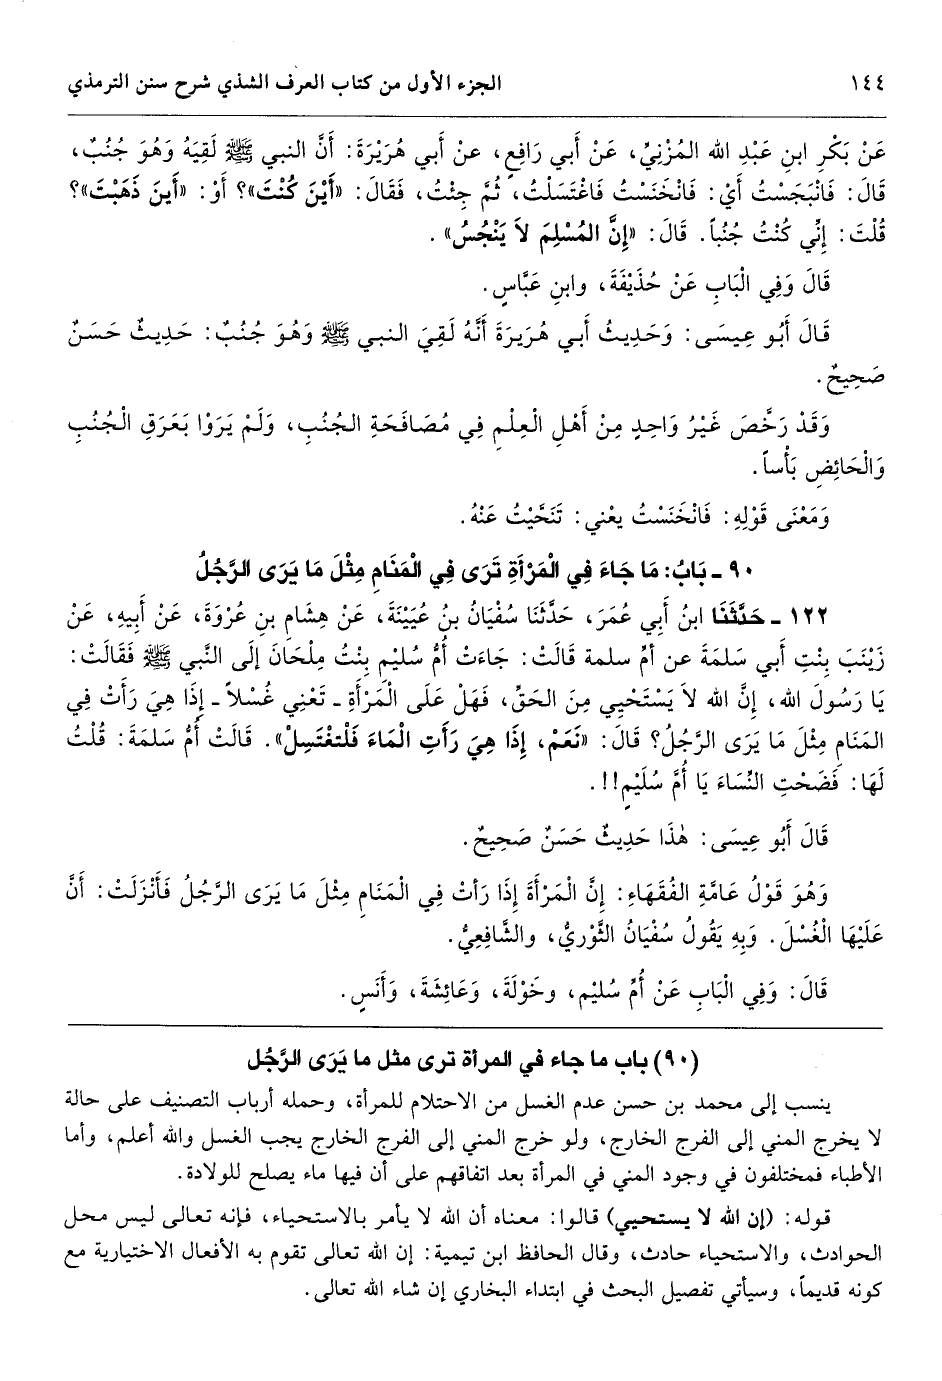 ١٤٤ الجزء الأول من كتاب العرف الشذي شرح سنن الترمذي
عَنْ بَكْرِ ابنِ عَبْدِ الله المُزْنِيِّ، عَنْ أبي رَافِعٍ، عنِ أبي هُرَيْرَةَ: أَنَّ النبي ﷺ لَقِيَهُ وَهُوَ جُنُبٌ،
قَالَ: فَانْبَجَسْتُ أيْ: فَانْخَنَسْتُ فَاغْتَسَلْتُ، ثُمَّ جِئْتُ، فَقَالَ: «أَيْنَ كُنْتَ»؟ أَوْ: «أَينَ ذَهَبْتَ»؟
قُلْتَ: إِنِّي كُنْتُ جُنُباً. قَالَ: «إِنَّ المُسْلِمَ لاَ يَنْجُسُ».
قَالَ وَفِي الْبَابِ عَنْ حُذَيْفَةَ، وابنِ عَبَّاسٍ.
قَالَ أَبُو عِيسَى: وَحَدِيثُ أبي هُرَيْرَةَ أَنَّهُ لَقِيَ النبي ﷺ وَهُوَ جُنُبٌ: حَدِيثٌ حَسَنٌ
صَحِيحٌ.
وَقَدْ رَخَّصَ غَيْرُ وَاحِدٍ مِنْ أَهْلِ الْعِلْمِ فِي مُصَافَحَةِ الجُنُبِ، وَلَمْ يَرَوْا بَعَرَقِ الْجُنُبِ
وَالْحَائِضِ بَأْساً.
وَمَعْنَى قَوْلِهِ: فَانْخَنَسْتُ يعْني: تَنَحَّيْتُ عَنْهُ.
٩٠ ـ بَابُ: مَا جَاءَ فِي الْمَرْأَةِ تَرَى فِي الْمَنَامِ مِثْلَ مَا يَرَى الرَّجُلُ
١٢٢ ـ حَدَّثَنَا ابنُ أبي عُمَرَ، حَدَّثَنَا سُفْيَانُ بنُ عُيَيْنَةَ، عَنْ هِشَامِ بنِ عُرْوَةَ، عَنْ أَبِيهِ، عَنْ
زَيْنَبَ بِنْتِ أبي سَلمَةَ عن أمِّ سلمة قَالَتْ: جَاءَتْ أُمُّ سُلَيمٍ بِنْتُ مِلْحَانَ إلَى النَّبي ﷺ فَقَالَتْ:
يَا رَسُولَ الله، إنَّ الله لاَ يَسْتَحْيِي مِنَ الحَقِّ، فَهَلْ عَلَى الْمَرْأَةِ ـ تَعْنِي غُسْلاً ـ إذَا هِيَ رَأَتْ فِي
المَنَامِ مِثْلَ مَا يَرَى الرَّجُلُ؟ قَالَ: «نَعَمْ، إذَا هِيَ رَأَتِ المَاءَ فَلتغْتَسِلْ». قَالَتْ أُمُّ سَلَمَةَ: قُلْتُ
لَهَا: فَضَحْتِ النِّسَاءَ يَا أُمَّ سُلَيْمٍ!!.
قَالَ أَبُو عِيسَى: هٰذَا حَدِيثٌ حَسَنٌ صَحِيحٌ.
وَهُوَ قَوْلُ عَامَّةِ الفُقَهَاءِ: إنَّ الْمَرْأَةَ إذَا رَأتْ فِي الْمَنَامِ مِثْلَ مَا يَرَى الرَّجُلُ فَأَنْزَلَتْ: أَنَّ
عَلَيْهَا الْغُسْلَ. وَبِهِ يَقُولُ سُفْيَانُ الثَّوْرِيُّ، والشَّافِعِيُّ.
قَالَ: وَفِي الْبَابِ عَنْ أُمِّ سُليْمٍ، وخَوْلَةَ، وَعَائِشَةَ، وَأَنَسٍ.
(٩٠) باب ما جاء في المرأة ترى مثل ما يَرَى الرَّجُل
ينسب إلى محمد بن حسن عدم الغسل من الاحتلام للمرأة، وحمله أرباب التصنيف على حالة
لا يخرج المني إلى الفرج الخارج، ولو خرج المني إلى الفرج الخارج يجب الغسل والله أعلم، وأما
الأطباء فمختلفون في وجود المني في المرأة بعد اتفاقهم على أن فيها ماء يصلح للولادة.
قوله: (إن الله لا يستحيي) قالوا: معناه أن الله لا يأمر بالاستحياء، فإنه تعالى ليس محل
الحوادث، والاستحياء حادث، وقال الحافظ ابن تيمية: إن الله تعالى تقوم به الأفعال الاختيارية مع
كونه قديماً، وسيأتي تفصيل البحث في ابتداء البخاري إن شاء الله تعالى.